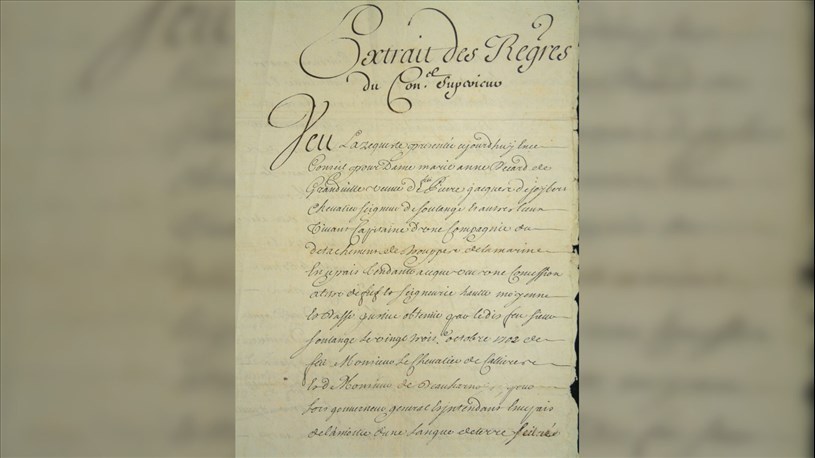 Extrait des Regres
du Con.el Superieur
Veu La requeste presentée aujourdhuy en ce
Conseil par Dame marie anne Becard de
Grandville veuve de Pierre Jacques de Joybert
Chevalier Seigneur de Soulange et autres lieux
Vivant Capitaine d'une Compagnie du
detachement de trouppes de la marine
En ce pais Tendante a ce que une Concession
a titre de fief et Seigneurie haute moyenne
et basse justice obtenue par ledit feu Sieur
Soulange Le vingt trois.e octobre 1702 de
feu Monsieur Le Chevalier de Calliere
et de Monsieur de Beauharnois, pour
lors gouverneur general et Intendant En ce pais
de la moitié d'une langue de terre